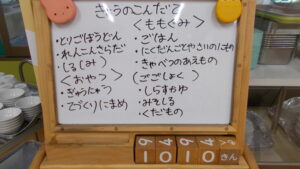 きょうのこんだて
・とりごぼうどん
・れんこんさらだ
・しる(しみ)
<おやつ>
・ぎゅうにゅう
・てづくりにまめ
<ももぐみ>
・ごはん
・にくだんごとやさいのにもの
・きゃべつのあえもの
(ごごしょく)
・しらすかゆ
・みそしる
・くだもの